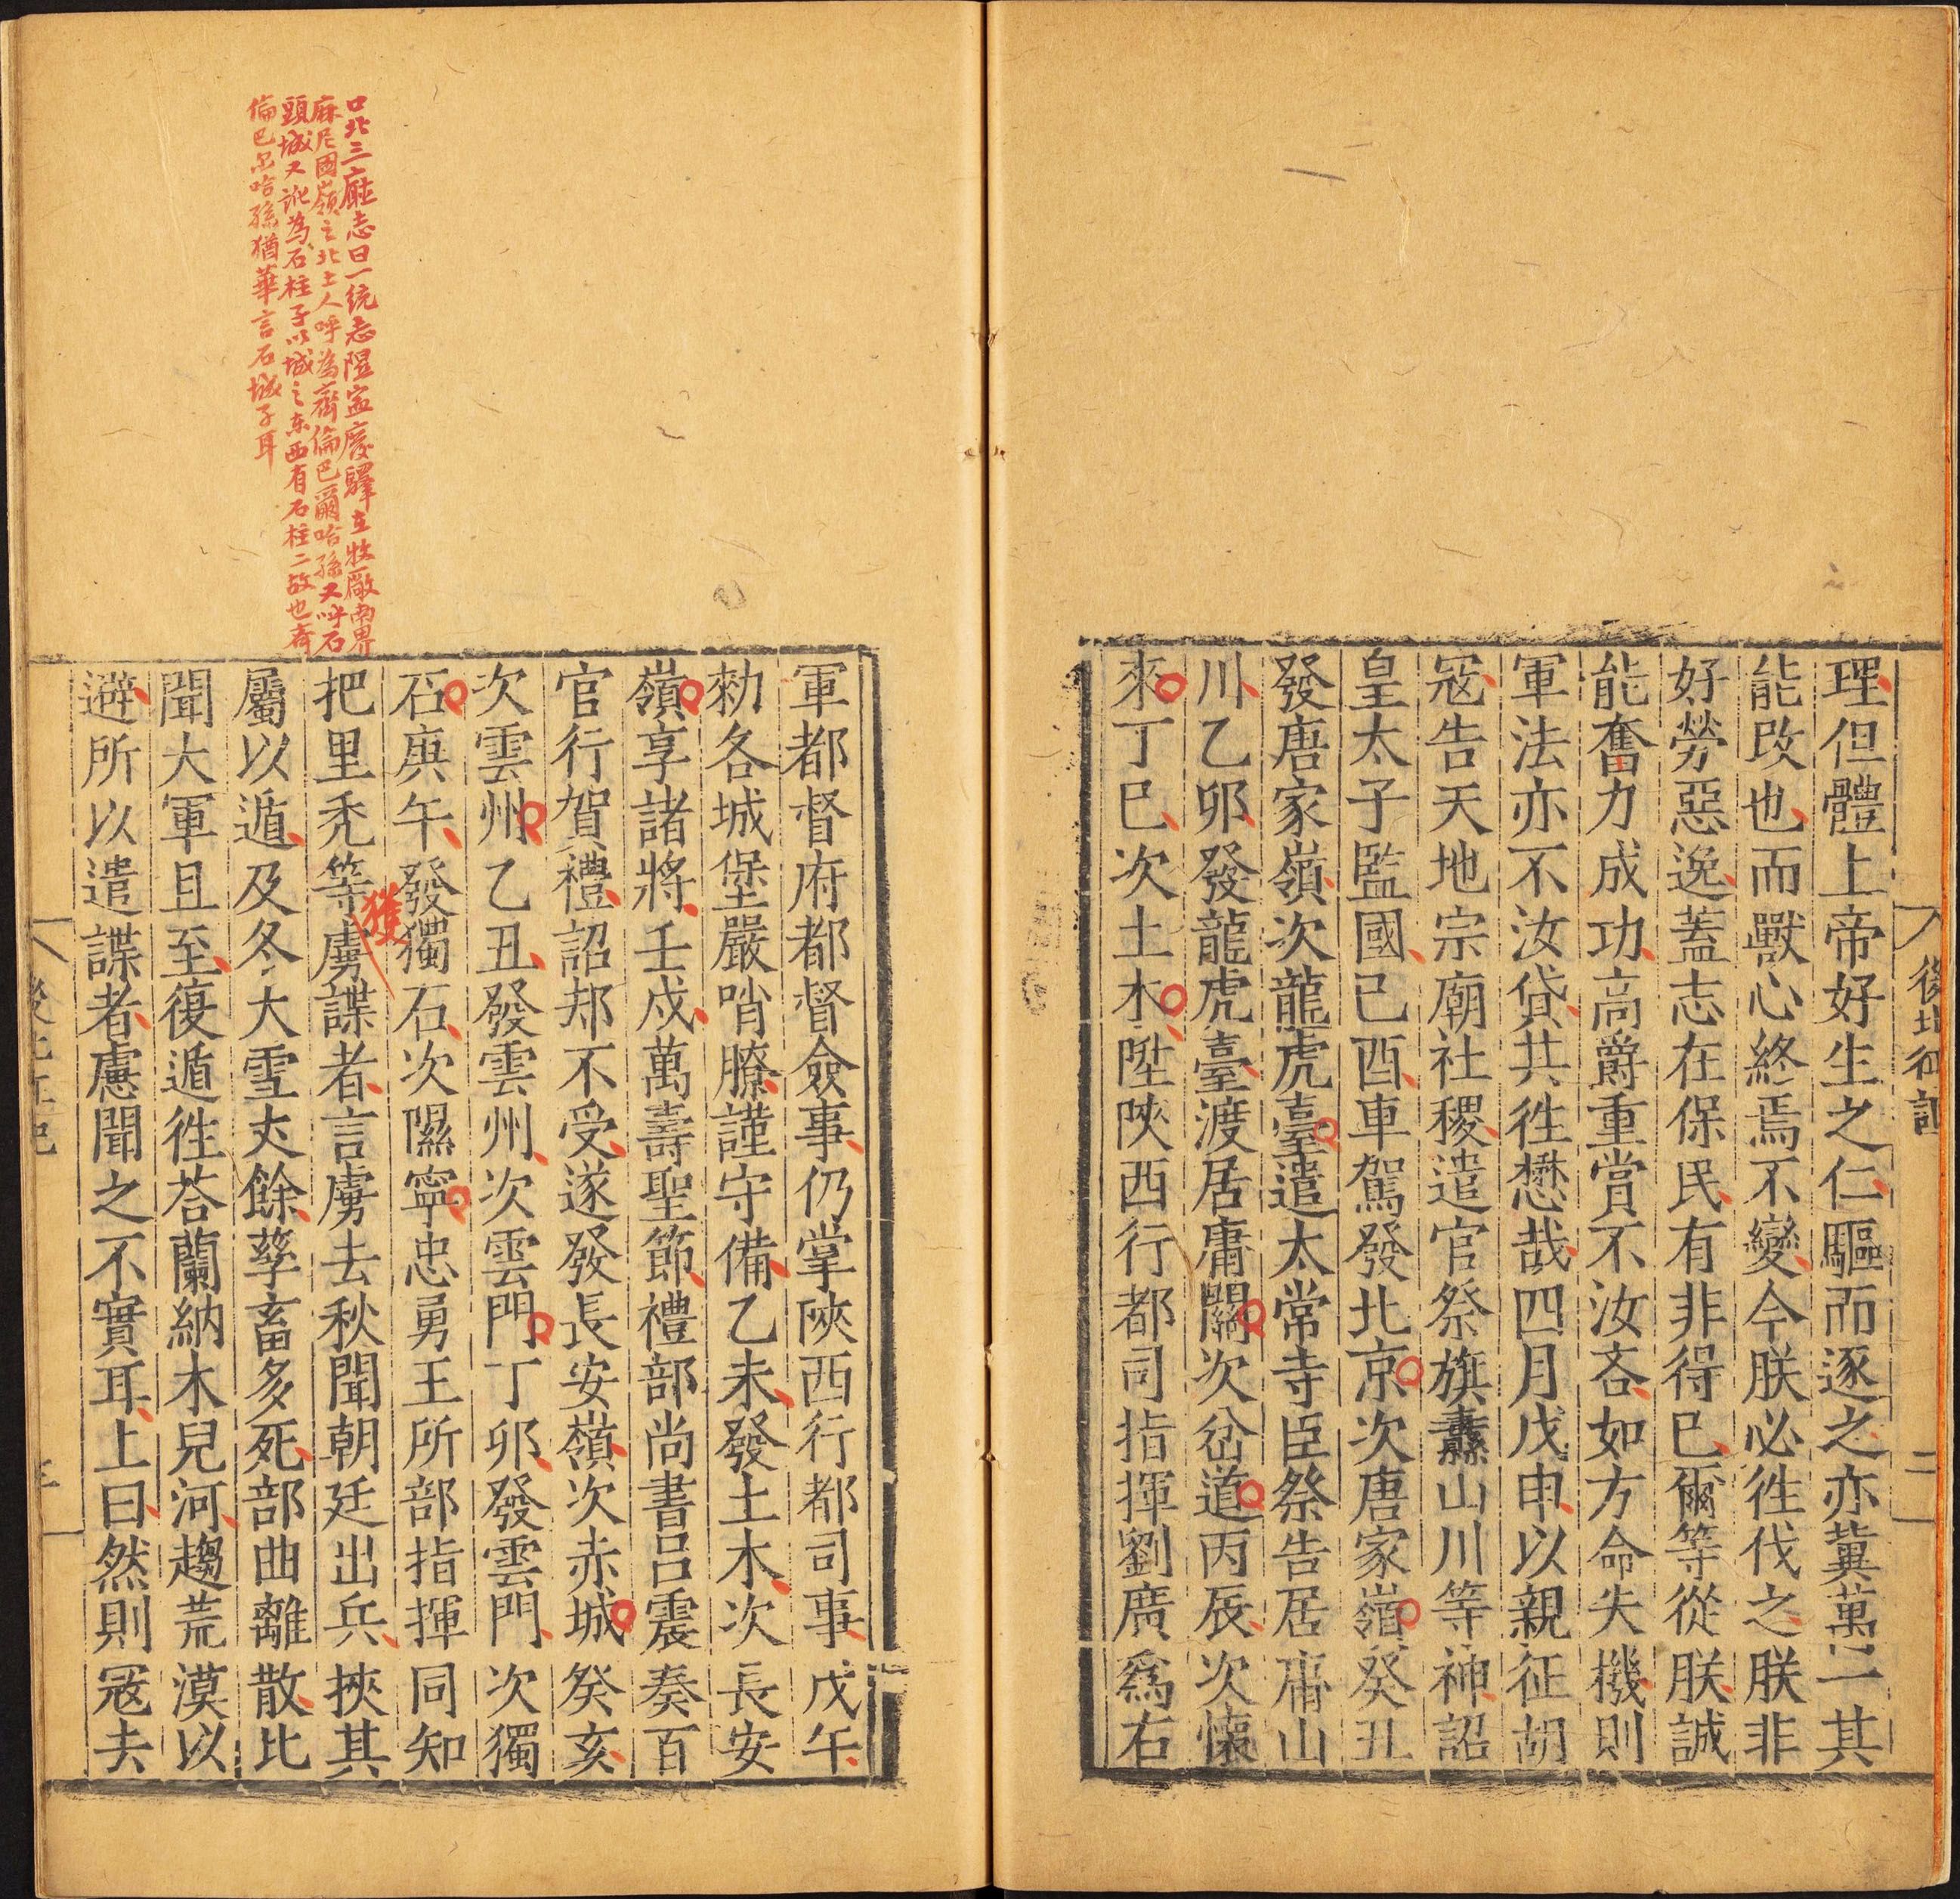 理但體上帝好生之仁驅而逐之亦冀萬一其
能改也而獸心終焉不變今朕必徃伐之朕非
好勞惡逸蓋志在保民有非得已爾等從朕誠
能奮力成功高爵重賞不汝吝如方命失機則
軍法亦不汝貸共徃懋哉四月戊申以親征胡
冦告天地宗廟社稷遣官祭旗纛山川等神詔
皇太子監國己酉車駕發北京次唐家嶺癸丑
發唐家嶺次龍虎臺遣太常寺臣祭告居庸山
川乙卯發龍虎臺渡居庸關次岔道丙辰次懷
來丁巳次土木陞陝西行都司指揮劉廣爲右
後北征記
二
口北三廳志曰一統志隰寧廢驛在牧廠南界
麻尼國嶺之北土人呼為齊倫巴爾哈孫又呼石
頭城又訛為石柱子以城之东西有石柱二故也齊
倫巴尔哈孫猶華言石城子耳
軍都督府都督僉事仍掌陝西行都司事戊午
勑各城堡嚴哨瞭謹守備乙未發土木次長安
嶺享諸將壬戌萬壽聖節禮部尚書呂震奏百
官行賀禮詔却不受遂發長安嶺次赤城癸亥
次雲州乙丑發雲州次雲門丁卯發雲門次獨
石庚午發獨石次隰寧忠勇王所部指揮同知
把里禿等虜諜者言虜去秋聞朝廷出兵挾其
獲
屬以遁及冬大雪丈餘孳畜多死部曲離散比
聞大軍且至復遁徃荅蘭納木兒河趨荒漠以
避所以遣諜者慮聞之不實耳上曰然則冦去